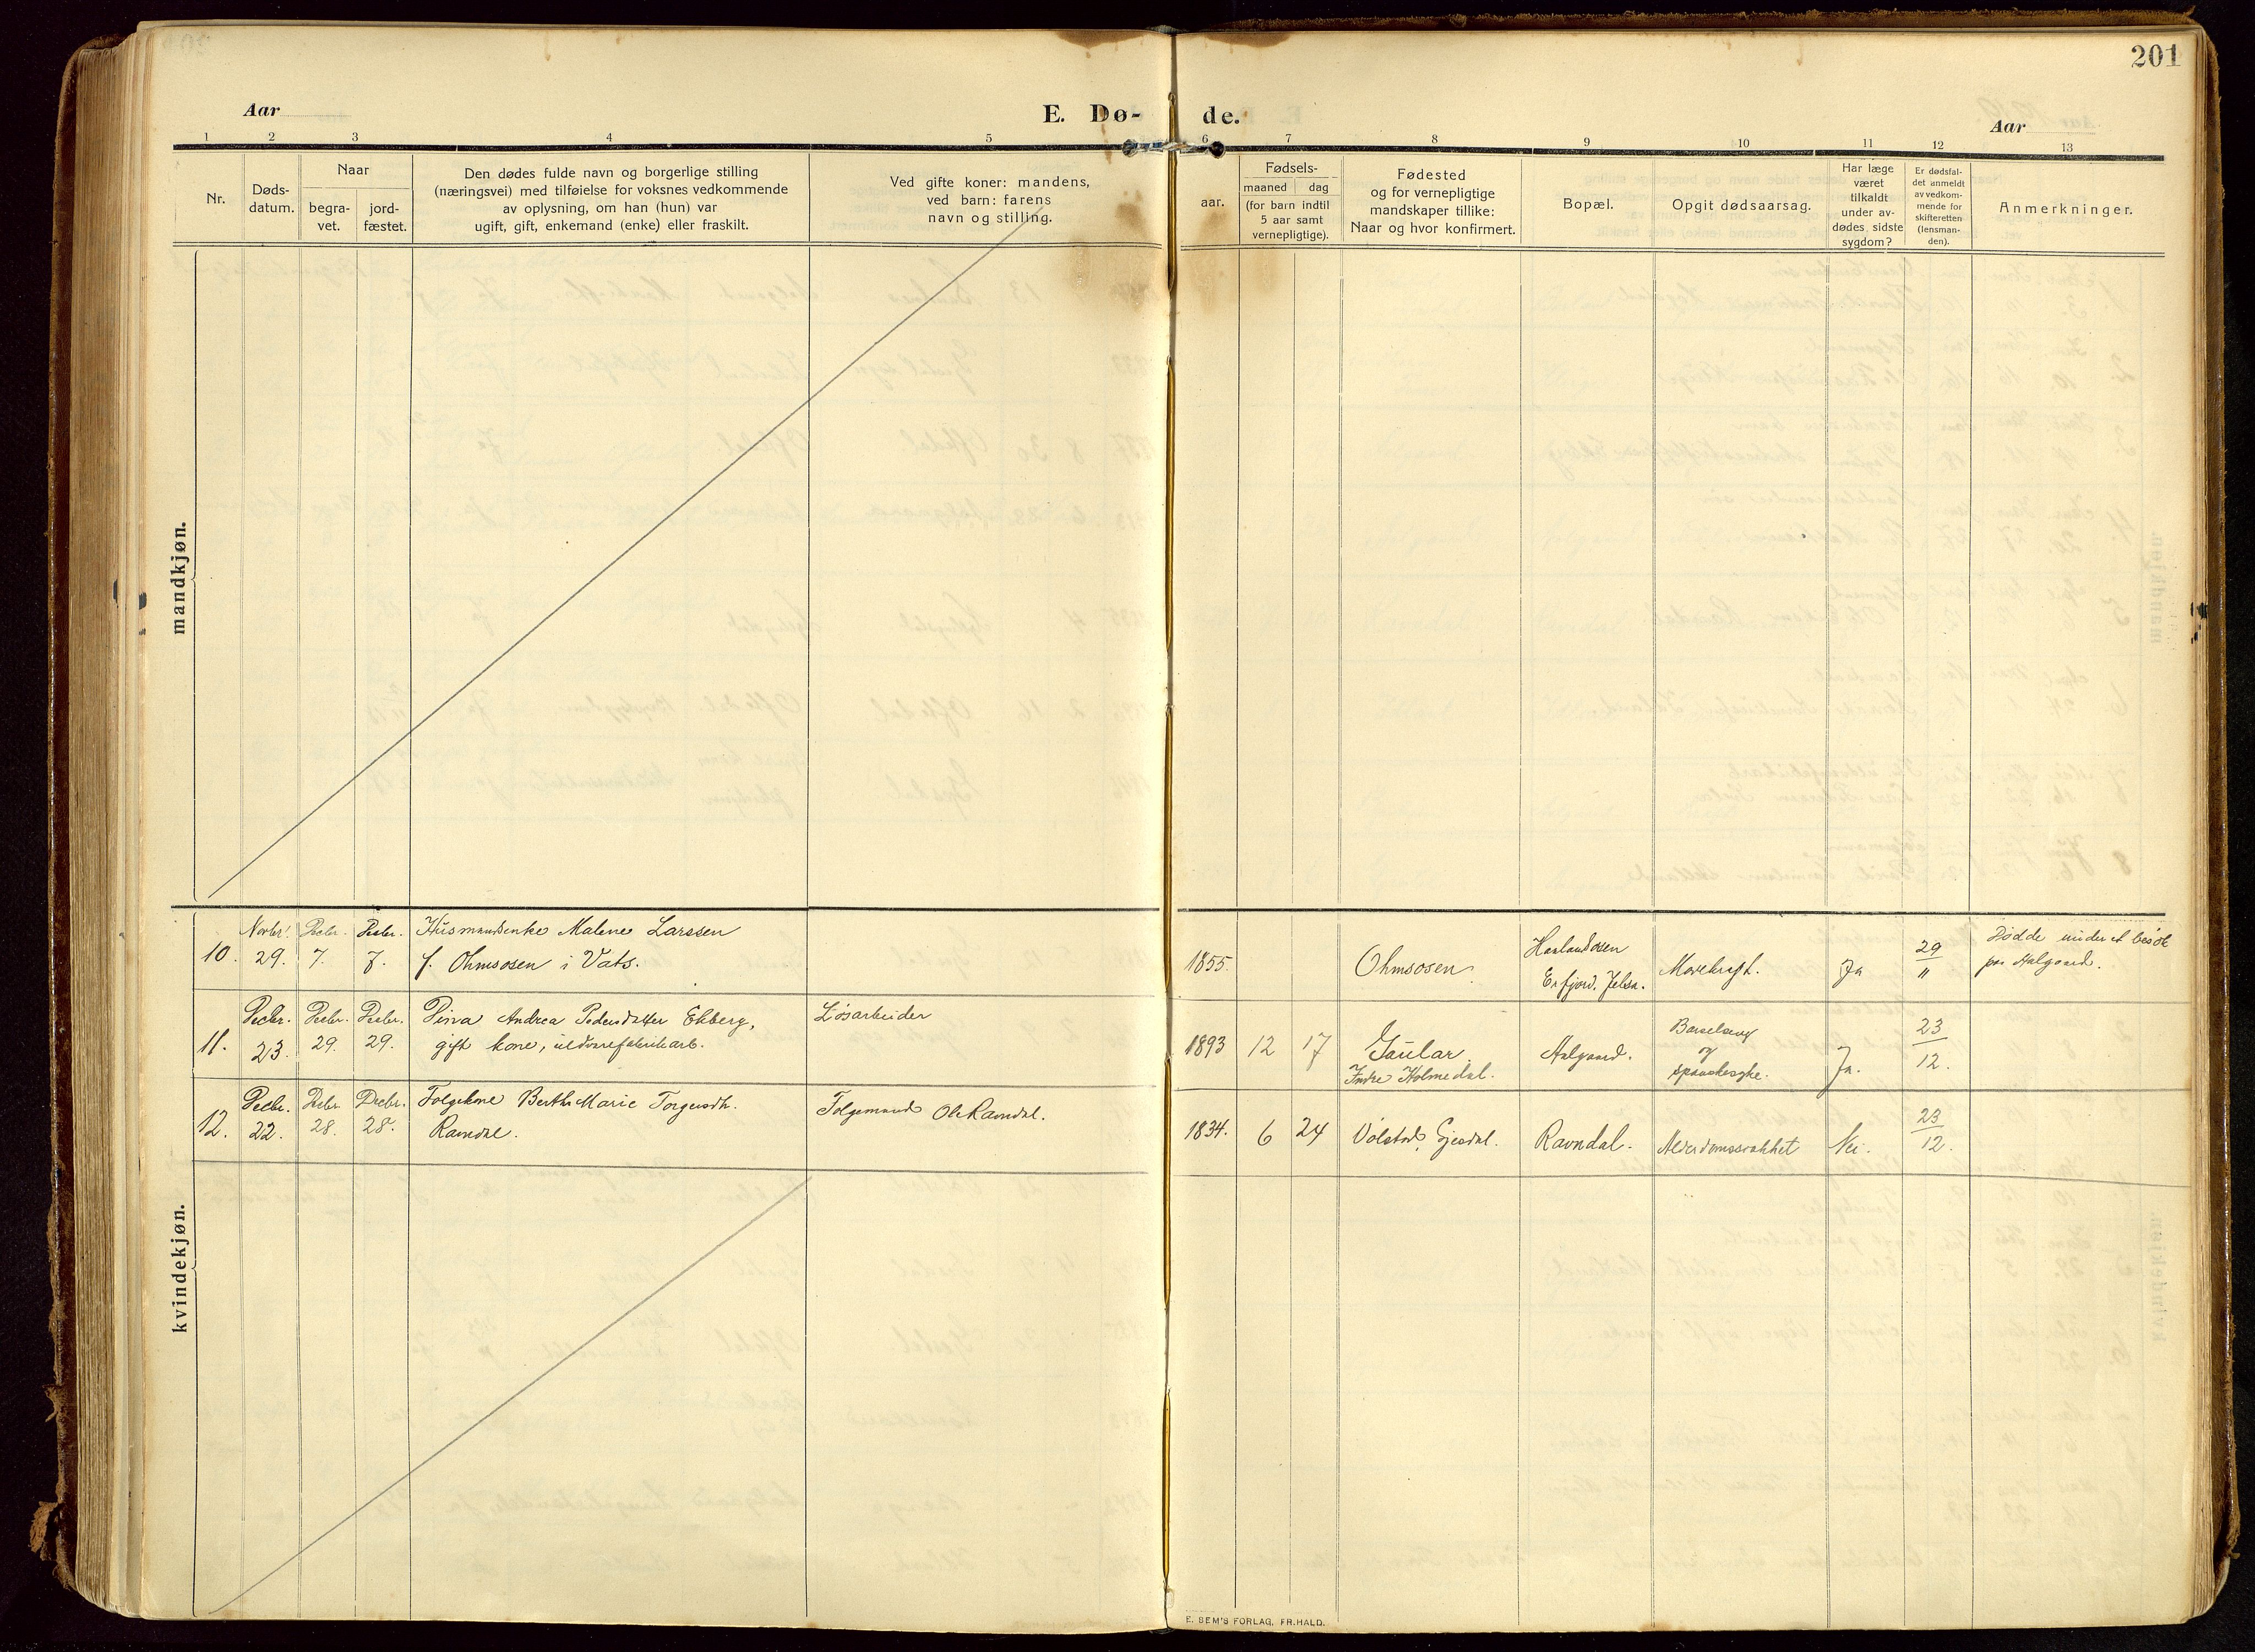 201
Aar
E. Dø-
de.
Aar
1 2 3 4 5 6 7 8 9 10 11 12 13
Nr.
Døds-
datum.
Naar
begra-
vet.
jord-
fæstet.
Den dødes fulde navn og borgerlige stilling
(næringsvei) med tilføielse for voksnes vedkommende
av oplysning, om han (hun) var
ugift, gift, enkemand (enke) eller fraskilt.
Ved gifte koner: mandens,
ved barn: farens
navn og stilling.
Fødsels-
aar.
maaned dag
(for barn indtil
5 aar samt
vernepligtige).
Fødested
og for vernepligtige
mandskaper tillike:
Naar og hvor konfirmert.
Bopæl.
Opgit dødsaarsag.
Har læge
været
tilkaldt
under av-
dødes sidste
sygdom?
Er dødsfal-
det anmeldt
av vedkom-
mende for
skifteretten
(lensman-
den).
Anmerkninger.
mandkjøn.
kvindekjøn.
10. Novbr. 29. Decbr. 7. Decbr. 7.
Husmandsenke Malene Larssen
f. Ohmsosen i Vats.
1855. Ohmsosen.
Erfjord, Jelsa.
Ja
29
"
Døde under et besøk
paa Aalgaard.
11. Decbr. 23. Decbr. 29. Decbr. 29.
Dina Andrea Pedersdatter Ekberg,
gift kone, uldvarefabrikarb.
Løsarbeider
1893 12 17
Gaular
Indre Holmedal.
Aalgaard.
Barselseng
og
spanskesyke.
Ja.
23
12.
12. Decbr. 22. Decbr. 28. Decbr. 28.
Folgekone Berthe Marie Torgersdtr.
Ravndal.
Folgemand Ole Ravndal.
1834. 6 24
Gjesdal.
Ravndal.
Alderdomssvakhet
Nei.
23
12.
E. BEM'S FORLAG, FR.HALD.